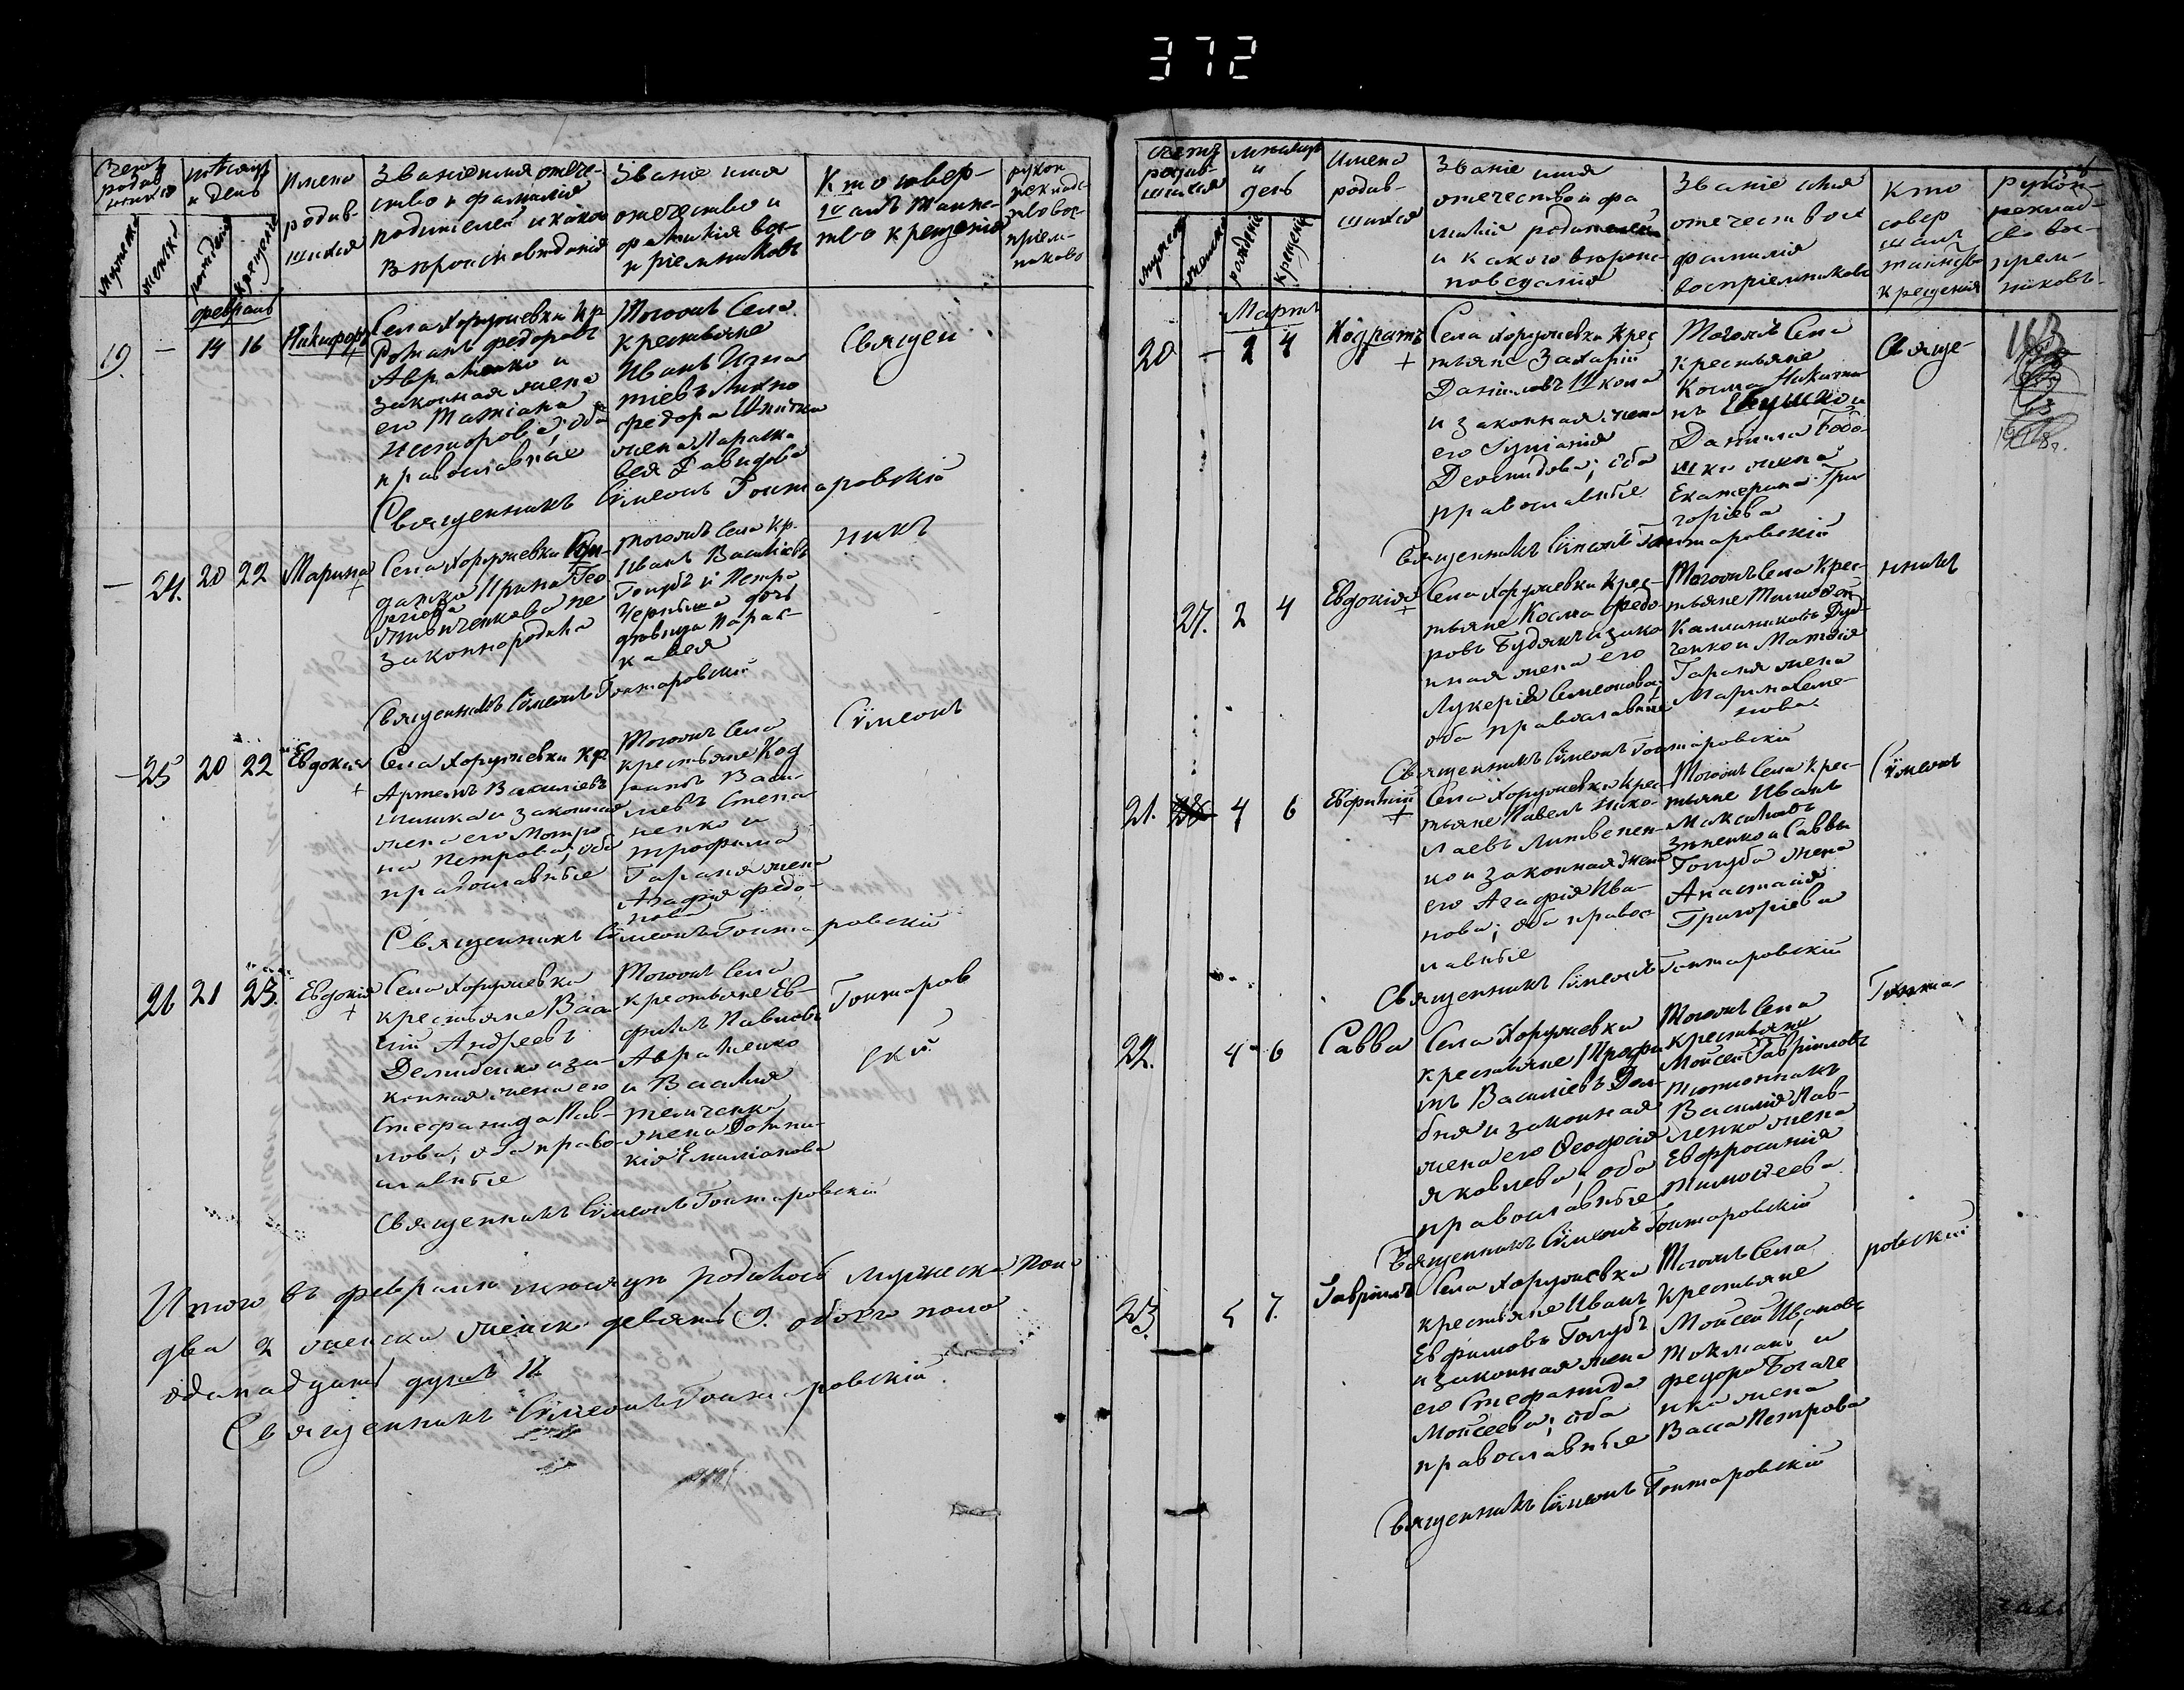 372
Счетъ родившихся
мѣсяцъ и день
Имена родившихся
Званіе имя отечество и фамилія родителей и какого вѣроисповѣданія
Званіе имя отечество и фамилія воспріемниковъ
Кто совершалъ таинство крещенія
рукоприкладство воспріемниковъ
Мужеска
женска
рожденія
крещенія
февраль
19.
—
14
16
Никифоръ
Села Хоружевки кр
Романъ федоровъ
Авраменко и
законная жена
его Татіана
оба
православные
Тогожъ Села
крестьяне
Иванъ Игна
тіевъ
федора
жена Параске
вея Давидова
Священ
Священникъ Сѵмеонъ Гонтаровскій
—
24.
20
22
Марина
Села Хоружевки
Ирина Гео
ргіева
не
законнорожд
Тогожъ Села кр.
Иванъ Василіевъ
Голубъ и Петра
Черныша дочь
дѣвица Парас-
кавея
никъ
Священникъ Сѵмеонъ Гонтаровскій
—
25
20
22
Евдокия
Села Хоружевки кр
Артемъ Василіевъ
Шишка и законная
жена его Мотро
на Петрова; оба
православные
Тогожъ Села
крестьяне Код
ратъ Васи
лиевъ Степа
ненко и
трофима
Гараня жена
Агафия федо-
рова
Сѵмеонъ
Священникъ Сѵмеонъ Гонтаровскій
26
21
23.
Евдокія
Села Хоружевки
крестьяне Васи
лій Андреевъ
Демиденко и за-
конная жена его
Стефанида Пав-
лова; оба право-
славные
Тогожъ Села
крестьяне Ев-
фимъ Павловъ
Авраменко
и Василия
жена Домни-
кія Емиліанова
Гонтаров
скій
Священникъ Сѵмеонъ Гонтаровскій
Итого въ февралѣ мѣсяцѣ родилось мужеска пола
два 2 женска женск девять 9. обоего пола
одинадцать душъ 11
Священникъ Сѵмеонъ Гонтаровскій
Счетъ родившихся
мѣсяцъ и день
Имена родившихся
Званіе имя отечество и фамилія родителей и какого вѣроисповѣданія
Званіе имя отечество и фамилія воспріемниковъ
Кто совершалъ таинство крещенія
Рукоприкладство воспріемниковъ
мужеска
женска
рожденія
крещенія
Мартъ
20
—
2
4
Кодратъ
Села Хоружевки Крес
тьяне Захарій
Даніиловъ Школа
и законная жена
его Іуліанія
Деомидова; оба
православные
Тогожъ Села
Крестьяне
Косма Никити
нъ и
Даніила Бобо-
шки жена
Екатерина Гри
горіева
Свяще-
Священникъ Сѵмеонъ Гонтаровскій
27.
2
4
Евдокия
Села Хоружевки Крес-
тьяне Косма Федо
ровъ Будякъ и зако
нная жена его
Лукерія Семеонова;
оба православные
Тогожъ Села Крес-
тьяне Тимоѳей
Каллиниковъ Дуд-
ченко и Матѳія
Гараня жена
Марина Семе-
нова
нникъ
Священникъ Сѵмеонъ Гонтаровскій
21.
4
6
Евфимій
Села Хоружевки Крес-
тьяне Павелъ Нико-
лаевъ Литвенен-
ко и законная жена
его Агафія Ива-
нова; оба правос-
лавные
Тогожъ Села Крес-
тьяне Иванъ
Максимовъ
Зѣненко и Саввы
Голуба жена
Анастасія
Григоріева
Сѵмеонъ
Священникъ Сѵмеонъ Гонтаровскій
22.
4
6
Савва
Села Хоружевки
крестьяне Проф
Василіевъ Дов-
бня и законная
жена его Ѳеодосія
Яковлева; оба
православные
Тогожъ Села
Крестьяне
Мойсей Гавріиловъ
Тютюнникъ
Василія Пав-
ленко жена
Евфросинія
Тимоѳеева
Гонта-
Священникъ Сѵмеонъ Гонтаровскій
23.
5
7.
Гавріилъ
Села Хоружевки
крестьяне Иванъ
Евфимовъ Голубъ
и законная жена
его Стефанида
Мойсеева; оба
православные
Тогожъ Села
Крестьяне
Мойсей Ивановъ
Токмань и
федора Богаче
нка жена
Васса Петрова
ровскій
Священникъ Сѵмеонъ Гонтаровскій